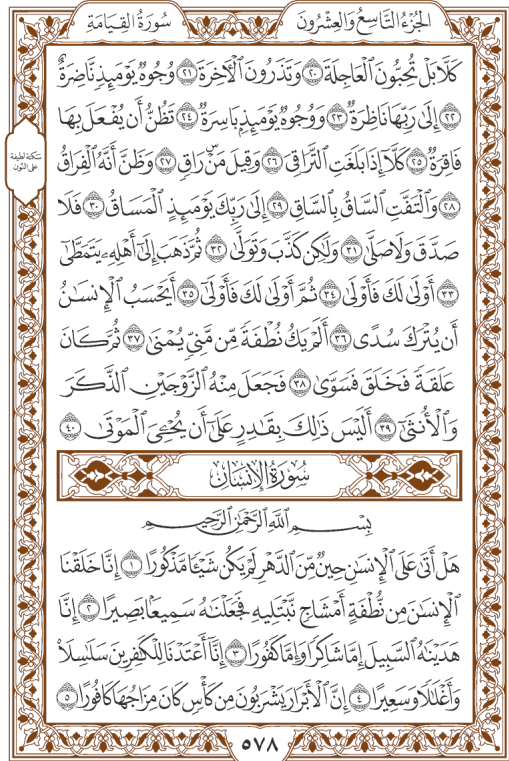 سُورَةُ القِيَامَةِ
الجُزْءُ التَّاسِعُ وَالعِشْرُونَ
كَلَّا بَلْ تُحِبُّونَ ٱلْعَاجِلَةَ ٢٠ وَتَذَرُونَ ٱلْأٓخِرَةَ ٢١ وُجُوهٌ يَوْمَئِذٍ نَّاضِرَةٌ
٢٢ إِلَىٰ رَبِّهَا نَاظِرَةٌ ٢٣ وَوُجُوهٌ يَوْمَئِذٍۭ بَاسِرَةٌ ٢٤ تَظُنُّ أَن يُفْعَلَ بِهَا
فَاقِرَةٌ ٢٥ كَلَّآ إِذَا بَلَغَتِ ٱلتَّرَاقِيَ ٢٦ وَقِيلَ مَنْۜ رَاقٍ ٢٧ وَظَنَّ أَنَّهُ ٱلْفِرَاقُ
٢٨ وَٱلْتَفَّتِ ٱلسَّاقُ بِٱلسَّاقِ ٢٩ إِلَىٰ رَبِّكَ يَوْمَئِذٍ ٱلْمَسَاقُ ٣٠ فَلَا
صَدَّقَ وَلَا صَلَّىٰ ٣١ وَلَٰكِن كَذَّبَ وَتَوَلَّىٰ ٣٢ ثُمَّ ذَهَبَ إِلَىٰٓ أَهْلِهِۦ يَتَمَطَّىٰٓ
٣٣ أَوْلَىٰ لَكَ فَأَوْلَىٰ ٣٤ ثُمَّ أَوْلَىٰ لَكَ فَأَوْلَىٰٓ ٣٥ أَيَحْسَبُ ٱلْإِنسَٰنُ
أَن يُتْرَكَ سُدًى ٣٦ أَلَمْ يَكُ نُطْفَةً مِّن مَّنِىٍّ يُمْنَىٰ ٣٧ ثُمَّ كَانَ
عَلَقَةً فَخَلَقَ فَسَوَّىٰ ٣٨ فَجَعَلَ مِنْهُ ٱلزَّوْجَيْنِ ٱلذَّكَرَ
وَٱلْأُنثَىٰٓ ٣٩ أَلَيْسَ ذَٰلِكَ بِقَٰدِرٍ عَلَىٰٓ أَن يُحْـِۧىَ ٱلْمَوْتَىٰ ٤٠
سكتة لطيفة
على النون
سُورَةُ الإِنسَانِ
بِسْمِ ٱللَّهِ ٱلرَّحْمَٰنِ ٱلرَّحِيمِ
هَلْ أَتَىٰ عَلَى ٱلْإِنسَٰنِ حِينٌ مِّنَ ٱلدَّهْرِ لَمْ يَكُن شَيْـًٔا مَّذْكُورًا ١ إِنَّا خَلَقْنَا
ٱلْإِنسَٰنَ مِن نُّطْفَةٍ أَمْشَاجٍ نَّبْتَلِيهِ فَجَعَلْنَٰهُ سَمِيعًۢا بَصِيرًا ٢ إِنَّا
هَدَيْنَٰهُ ٱلسَّبِيلَ إِمَّا شَاكِرًا وَإِمَّا كَفُورًا ٣ إِنَّآ أَعْتَدْنَا لِلْكَٰفِرِينَ سَلَٰسِلَا۟
وَأَغْلَٰلًا وَسَعِيرًا ٤ إِنَّ ٱلْأَبْرَارَ يَشْرَبُونَ مِن كَأْسٍ كَانَ مِزَاجُهَا كَافُورًا ٥
٥٧٨